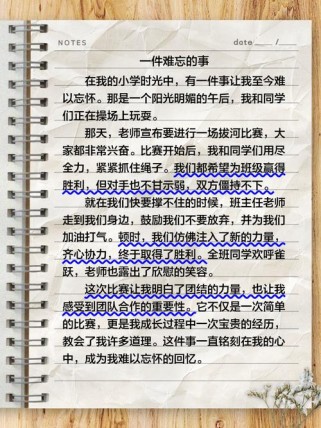 NOTES
date ___ /___
一件难忘的事
在我的小学时光中，有一件事让我至今难
以忘怀。那是一个阳光明媚的午后，我和同学
们正在操场上玩耍。
那天，老师宣布要进行一场拔河比赛，大
家都非常兴奋。比赛开始后，我和同学们用尽
全力，紧紧抓住绳子。我们都希望为班级赢得
胜利，但对手也不甘示弱，双方僵持不下。
就在我们快要撑不住的时候，班主任老师
走到我们身边，鼓励我们不要放弃，并为我们
加油打气。顿时，我们仿佛注入了新的力量，
齐心协力，终于取得了胜利。全班同学欢呼雀
跃，老师也露出了欣慰的笑容。
这次比赛让我明白了团结的力量，也让我
感受到团队合作的重要性。它不仅是一次简单
的比赛，更是我成长过程中一次宝贵的经历，
教会了我许多道理。这件事一直铭刻在我的心
中，成为我难以忘怀的回忆。